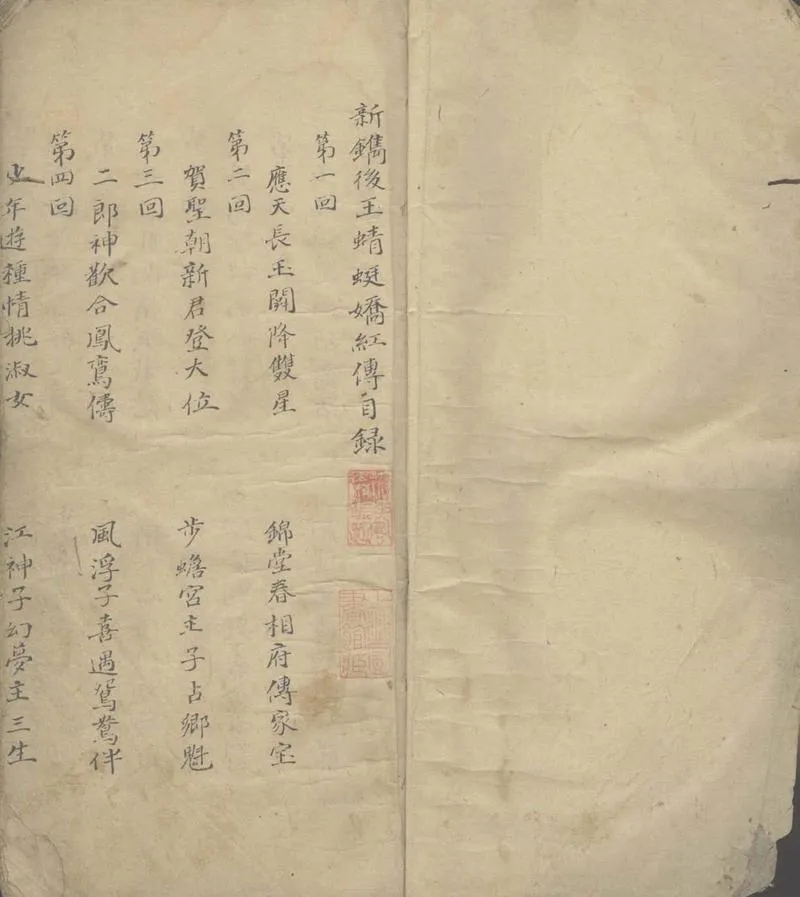 新鐫後玉蜻蜓嬌紅傳目録
第一回
應天長玉闕降雙星 錦堂春相府傳家宝
第二回
賀聖朝新君登大位 步蟾宮主子占鄉魁
第三回
二郎神歡合鳳鸞儔 風浮子喜遇鴛鴦伴
第四回
少年遊種情挑淑女 江神子幻夢主三生